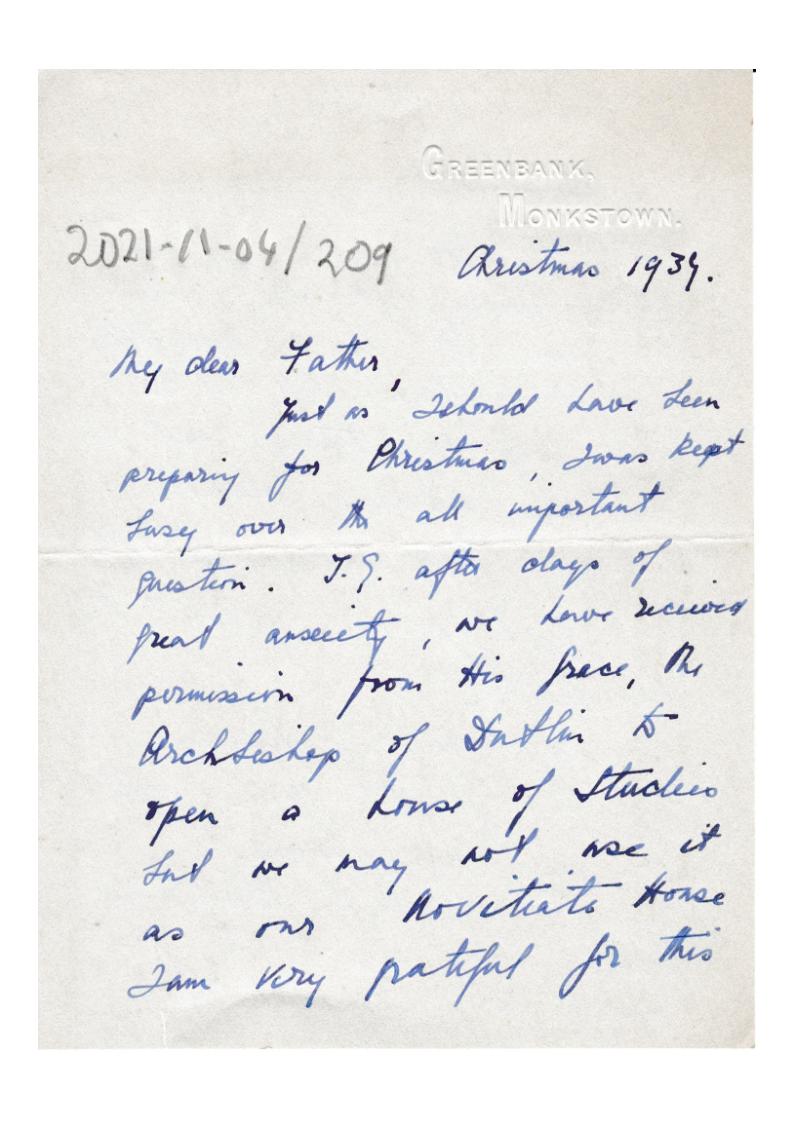 GREENBANK,
MONKSTOWN.
2021-11-04/209
Christmas 1937.
My dear Father,
Just as I should have been
preparing for Christmas, I was kept
busy over the all important
question. T.G. after days of
great anxiety, we have received
permission from His Grace, the
Archbishop of Dublin to
open a house of Studies
but we may not use it
as our Novitiate House
I am very grateful for this